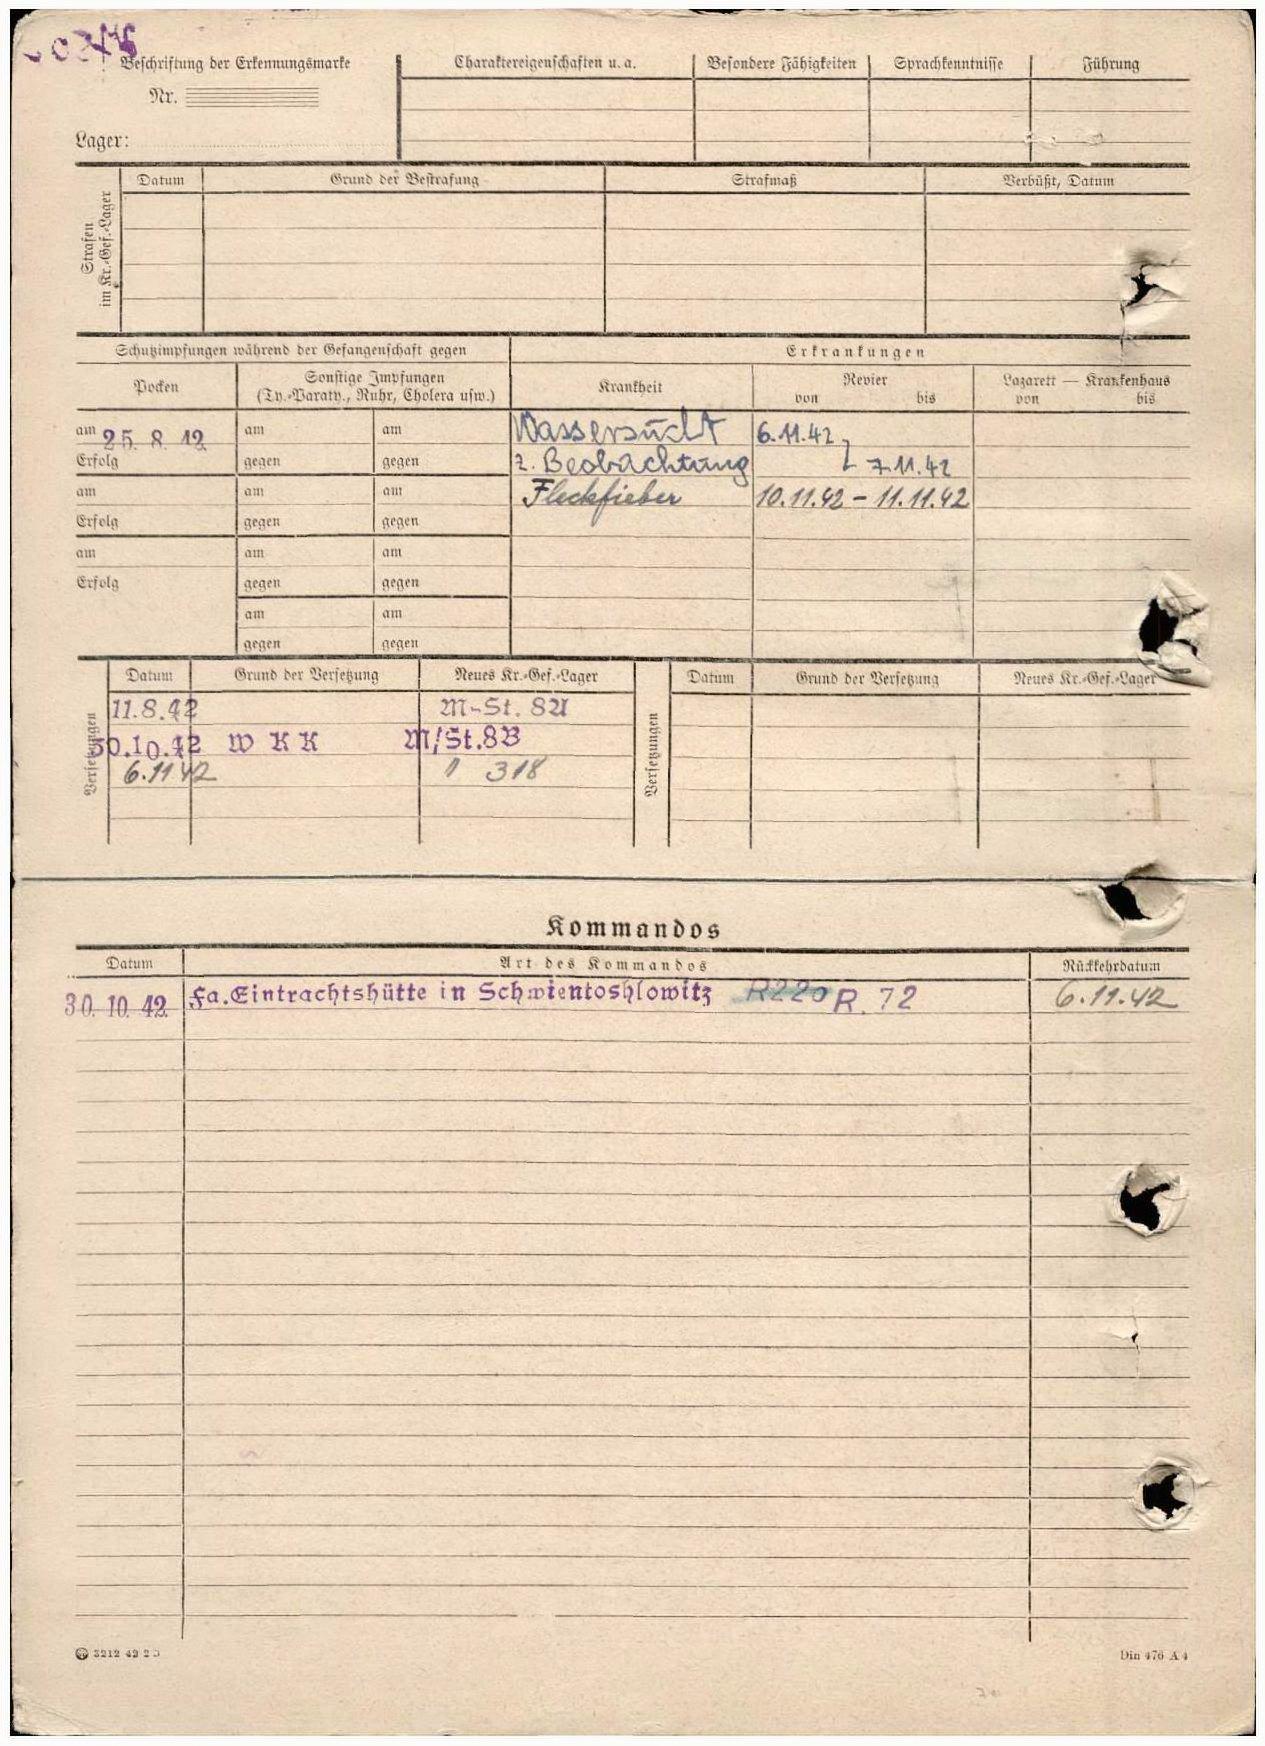 Beschriftung der Erkennungsmarke
Nr.
Lager:
Charaktereigenschaften u. a.
Besondere Fähigkeiten
Sprachkenntnisse
Führung
Strafen im Kr.-Gef.-Lager
Datum
Grund der Bestrafung
Strafmaß
Verbüßt, Datum
Schutzimpfungen während der Gefangenschaft gegen
Erkrankungen
Pocken
Sonstige Impfungen
(Ty.-Paraty., Ruhr, Cholera usw.)
Krankheit
Revier
von bis
Lazarett — Krankenhaus
von bis
am 25. 8. 42 am am Wassersucht 6.11.42
Erfolg gegen gegen z. Beobachtung 7.11.42
am am am Fleckfieber 10.11.42 – 11.11.42
Erfolg gegen gegen
am am am
Erfolg gegen gegen
am am
gegen gegen
Versetzungen
Datum Grund der Versetzung Neues Kr.-Gef.-Lager
11.8.42 M-St. 8A
30.10.42 W K K M/St.8B
6.11.42 318
Versetzungen
Datum Grund der Versetzung Neues Kr.-Gef.-Lager
Kommandos
Datum Art des Kommandos Rückkehrdatum
30. 10. 42. Fa.Eintrachtshütte in Schwientoshlowitz R220 R. 72 6.11.42
3212 42 2 D
Din 476 A 4